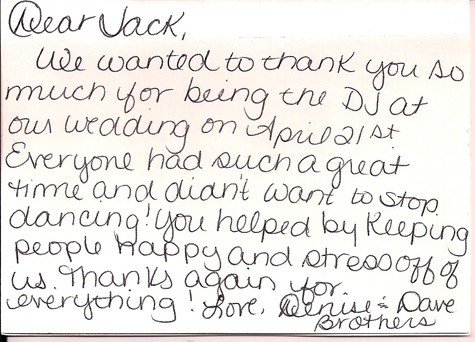 Dear Jack,
We wanted to thank you so
much for being the DJ at
our wedding on April 21st
Everyone had such a great
time and didn't want to stop
dancing! You helped by keeping
people happy and stress off of
us. Thanks again for
everything! Love, Denise & Dave
Brothers